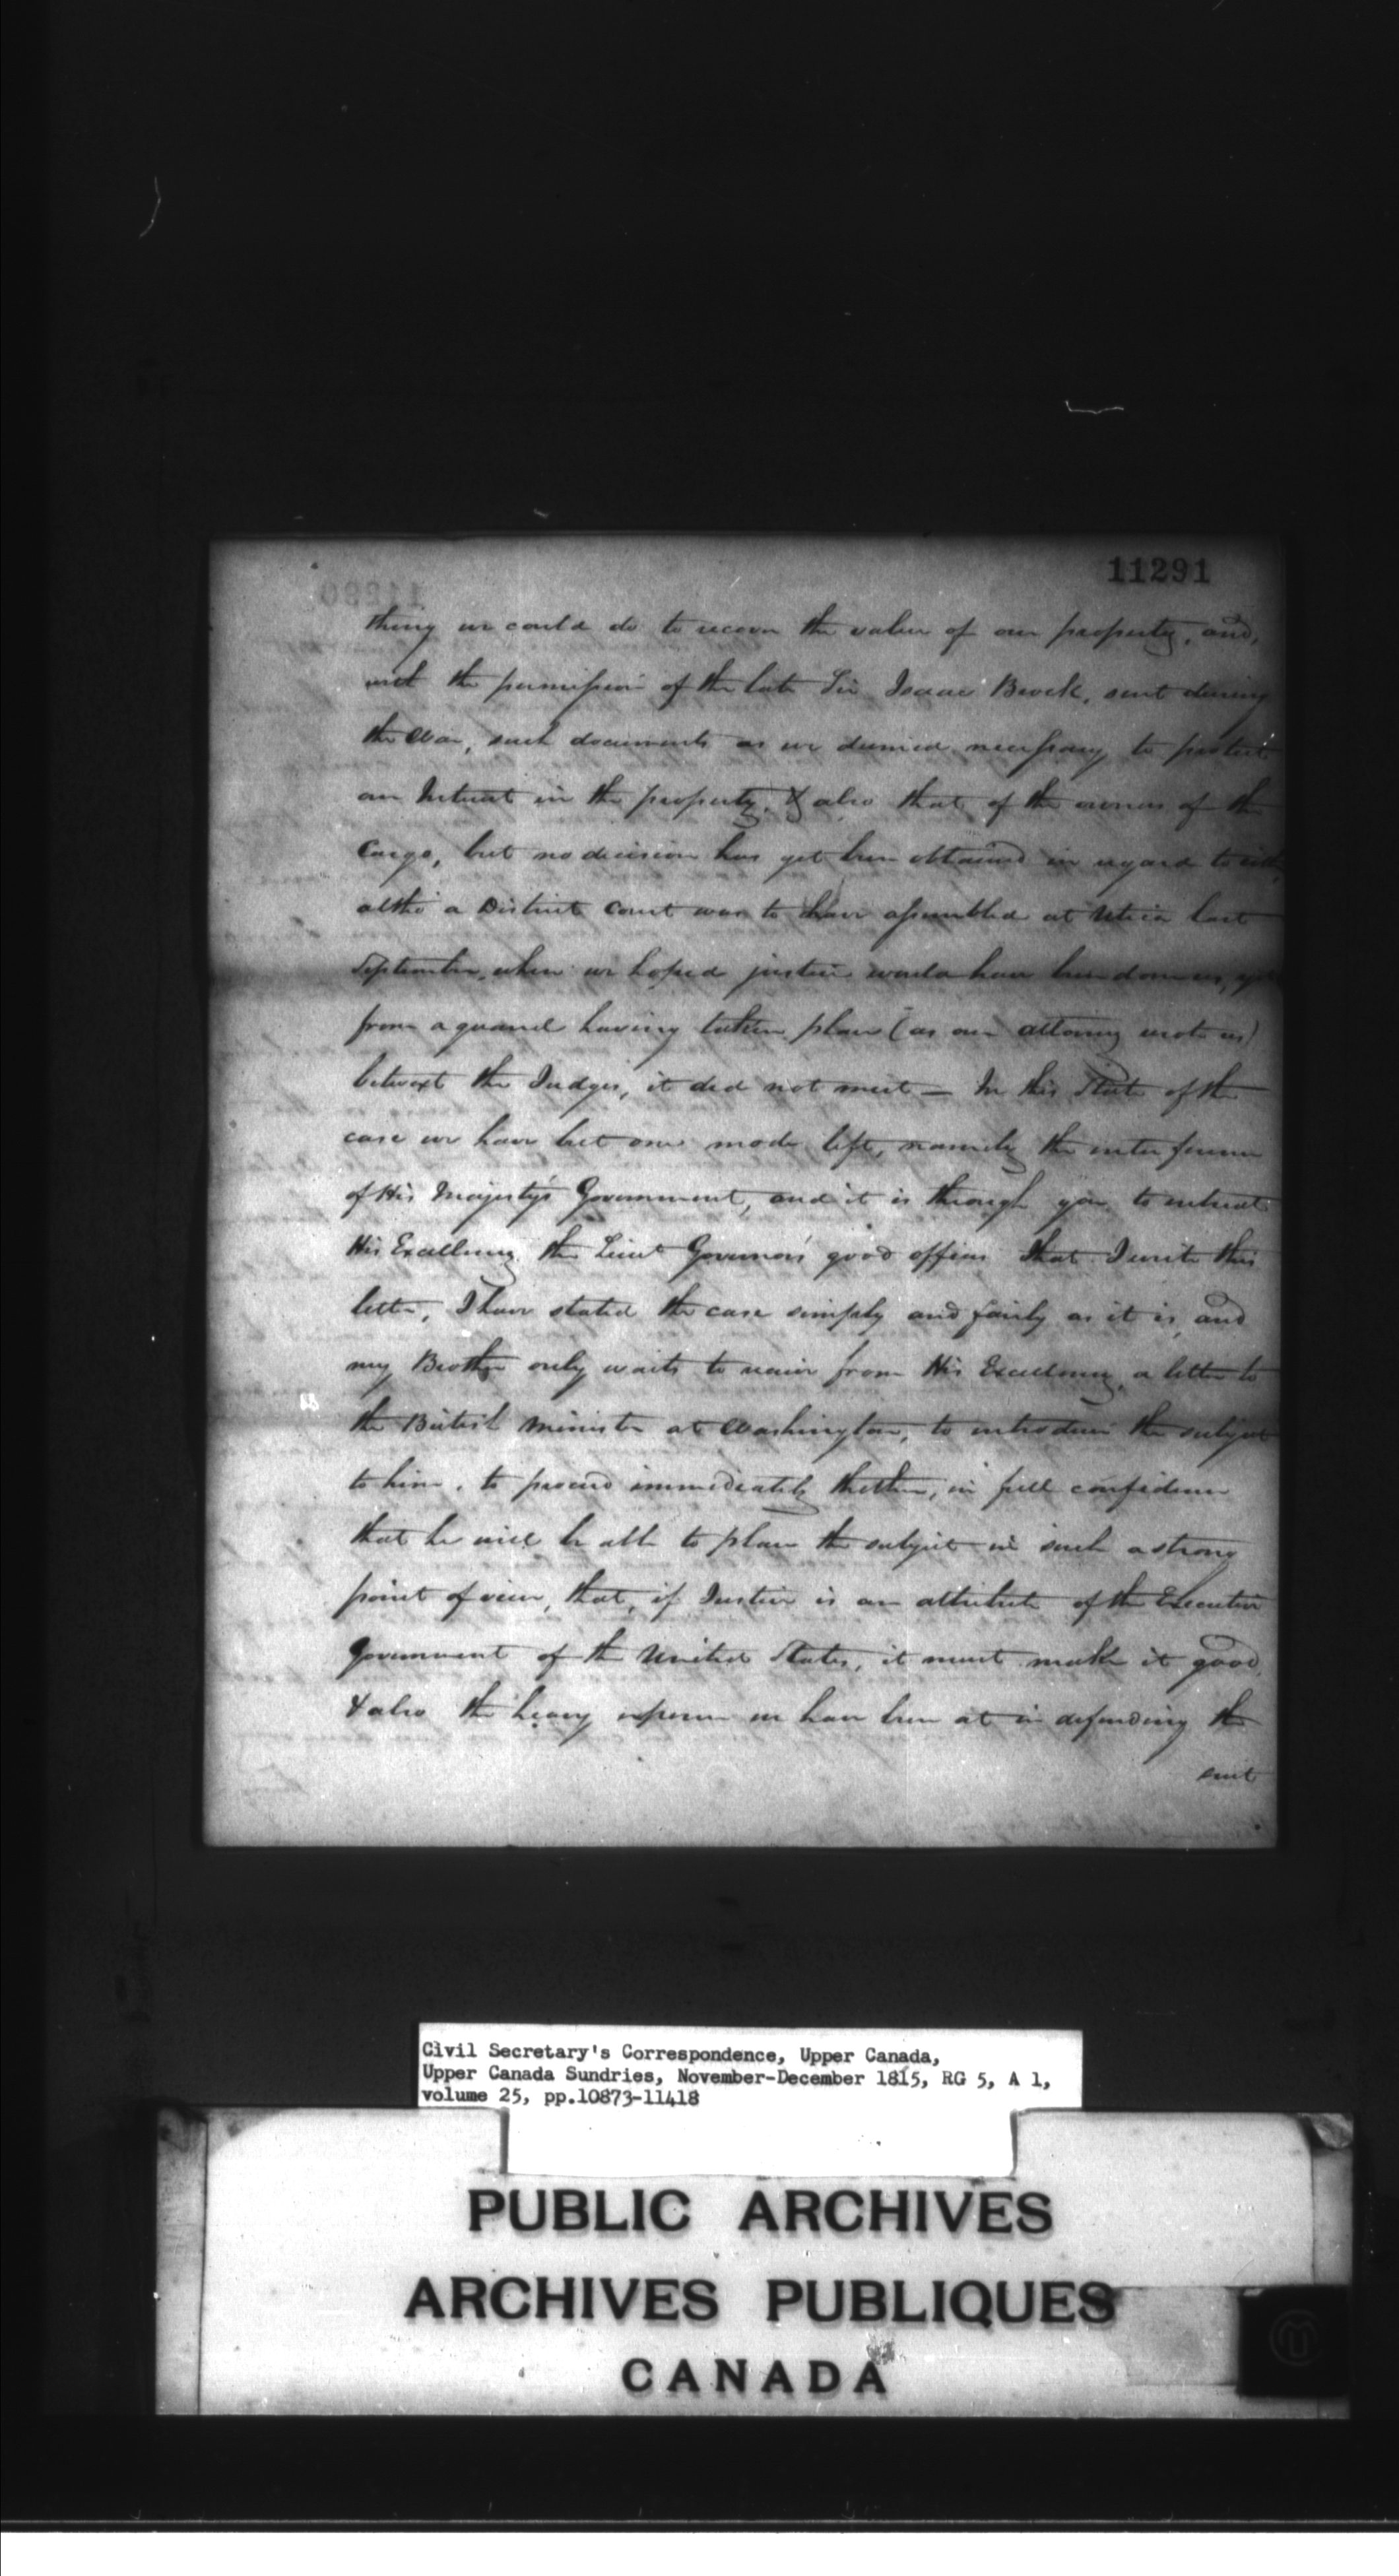 11291
thing we could do to recover the value of our property, and,
with the permission of the late Sir Isaac Brock, sent during
the War, such documents as we deemed necessary to protect
our Interest in the property, & also that of the owners of the
Cargo, but no decision has yet been obtained in regard to
altho a District Court was to have assembled at Utica last
September, when we hoped justice would have been done us,
from a quarrel having taken place (as our attorney wrote us)
betwixt the Judges, it did not meet — In this State of the
case we have but one mode left, namely the interference
of His Majesty's Government, and it is through you, to entreat
His Excellency the Lieut Governor's good offices that I write this
letter, I have stated the case simply and fairly as it is, and
my Brother only waits to receive from His Excellency, a letter to
the British Minister at Washington, to introduce the subject
to him, to proceed immediately thither, in full confidence
that he will be able to place the subject in such a strong
point of view, that, if Justice is an attribute of the Executive
Government of the United States, it must make it good
& also the heavy expense we have been at in defending the
suit
Civil Secretary's Correspondence, Upper Canada,
Upper Canada Sundries, November-December 1815, RG 5, A 1,
volume 25, pp.10873-11418
PUBLIC ARCHIVES
ARCHIVES PUBLIQUES
CANADA